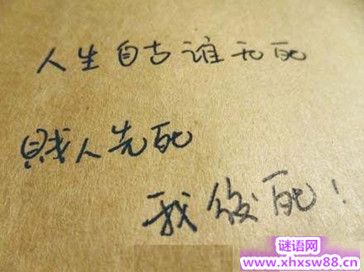 人生自古谁无死
贱人先死
我後死!
谜语网
www.xhxsw88.cn